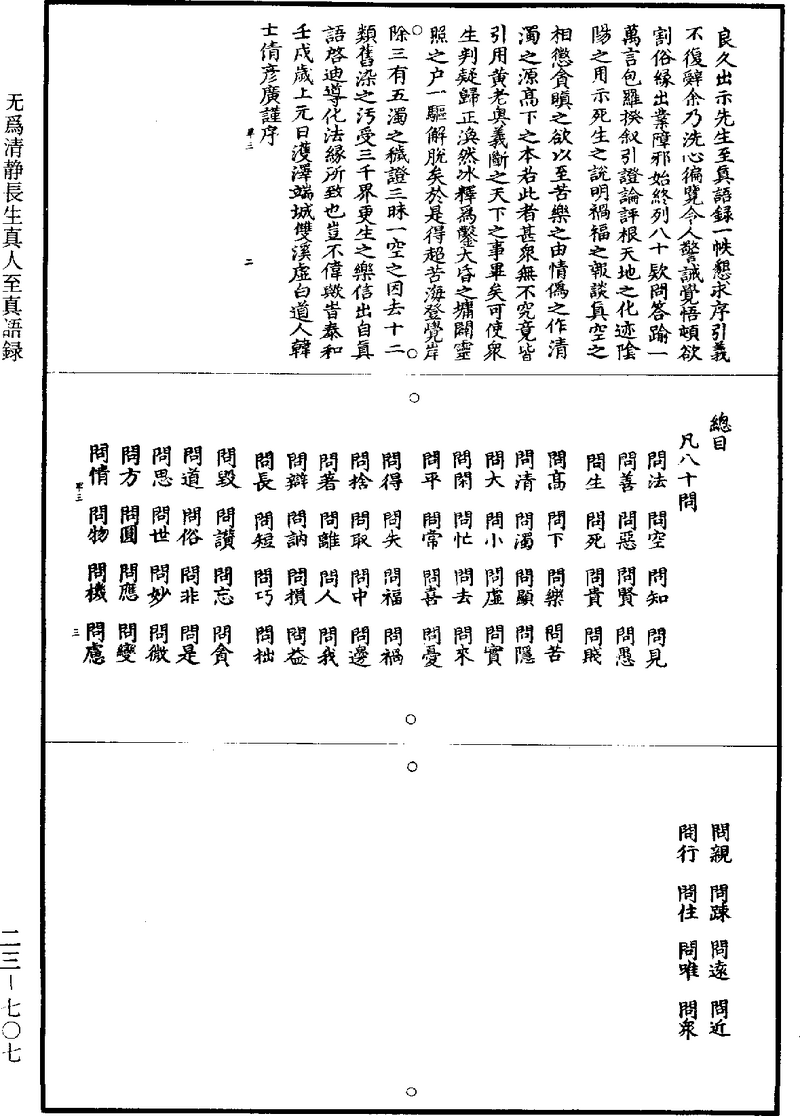 良久出示先生至真語録一帙懇求序引義
不復辭余乃洗心徧覽令人警誡覺悟頓欲
割俗緣出業障邪始終列八十欵問答踰一
萬言包羅揆叙引證論評根天地之化迹陰
陽之用示死生之說明禍福之報談真空之
相懲貪瞋之欲以至苦樂之由情僞之作清
濁之源髙下之本若此者甚衆無不究竟皆
引用黄老奥義斷之天下之事畢矣可使衆
生判疑歸正渙然冰釋爲鑿大昏之墉闢靈
照之户一驅解脫矣於是得超苦海登覺岸
除三有五濁之穢證三昧一空之因去十二
類舊染之汚受三千界更生之樂信出自真
語啓迪導化法緣所致也豈不偉歟旹泰和
壬戌歲上元日濩澤端城雙溪虛白道人韓
士倩彦廣謹序
二
總目
凡八十問
問法 問空 問知 問見
問善 問惡 問賢 問愚
問生 問死 問貴 問賤
問髙 問下 問樂 問苦
問清 問濁 問顯 問隱
問大 問小 問虛 問實
問閑 問忙 問去 問來
問平 問常 問喜 問憂
問得 問失 問福 問禍
問捨 問取 問中 問邊
問著 問離 問人 問我
問辯 問訥 問損 問益
問長 問短 問巧 問拙
問毀 問讚 問忘 問貪
問道 問俗 問非 問是
問思 問世 問妙 問微
問方 問圓 問應 問變
問情 問物 問機 問慮
三
問親 問踈 問遠 問近
問行 問住 問唯 問衆
无爲清静長生真人至真語録
二三－七〇七